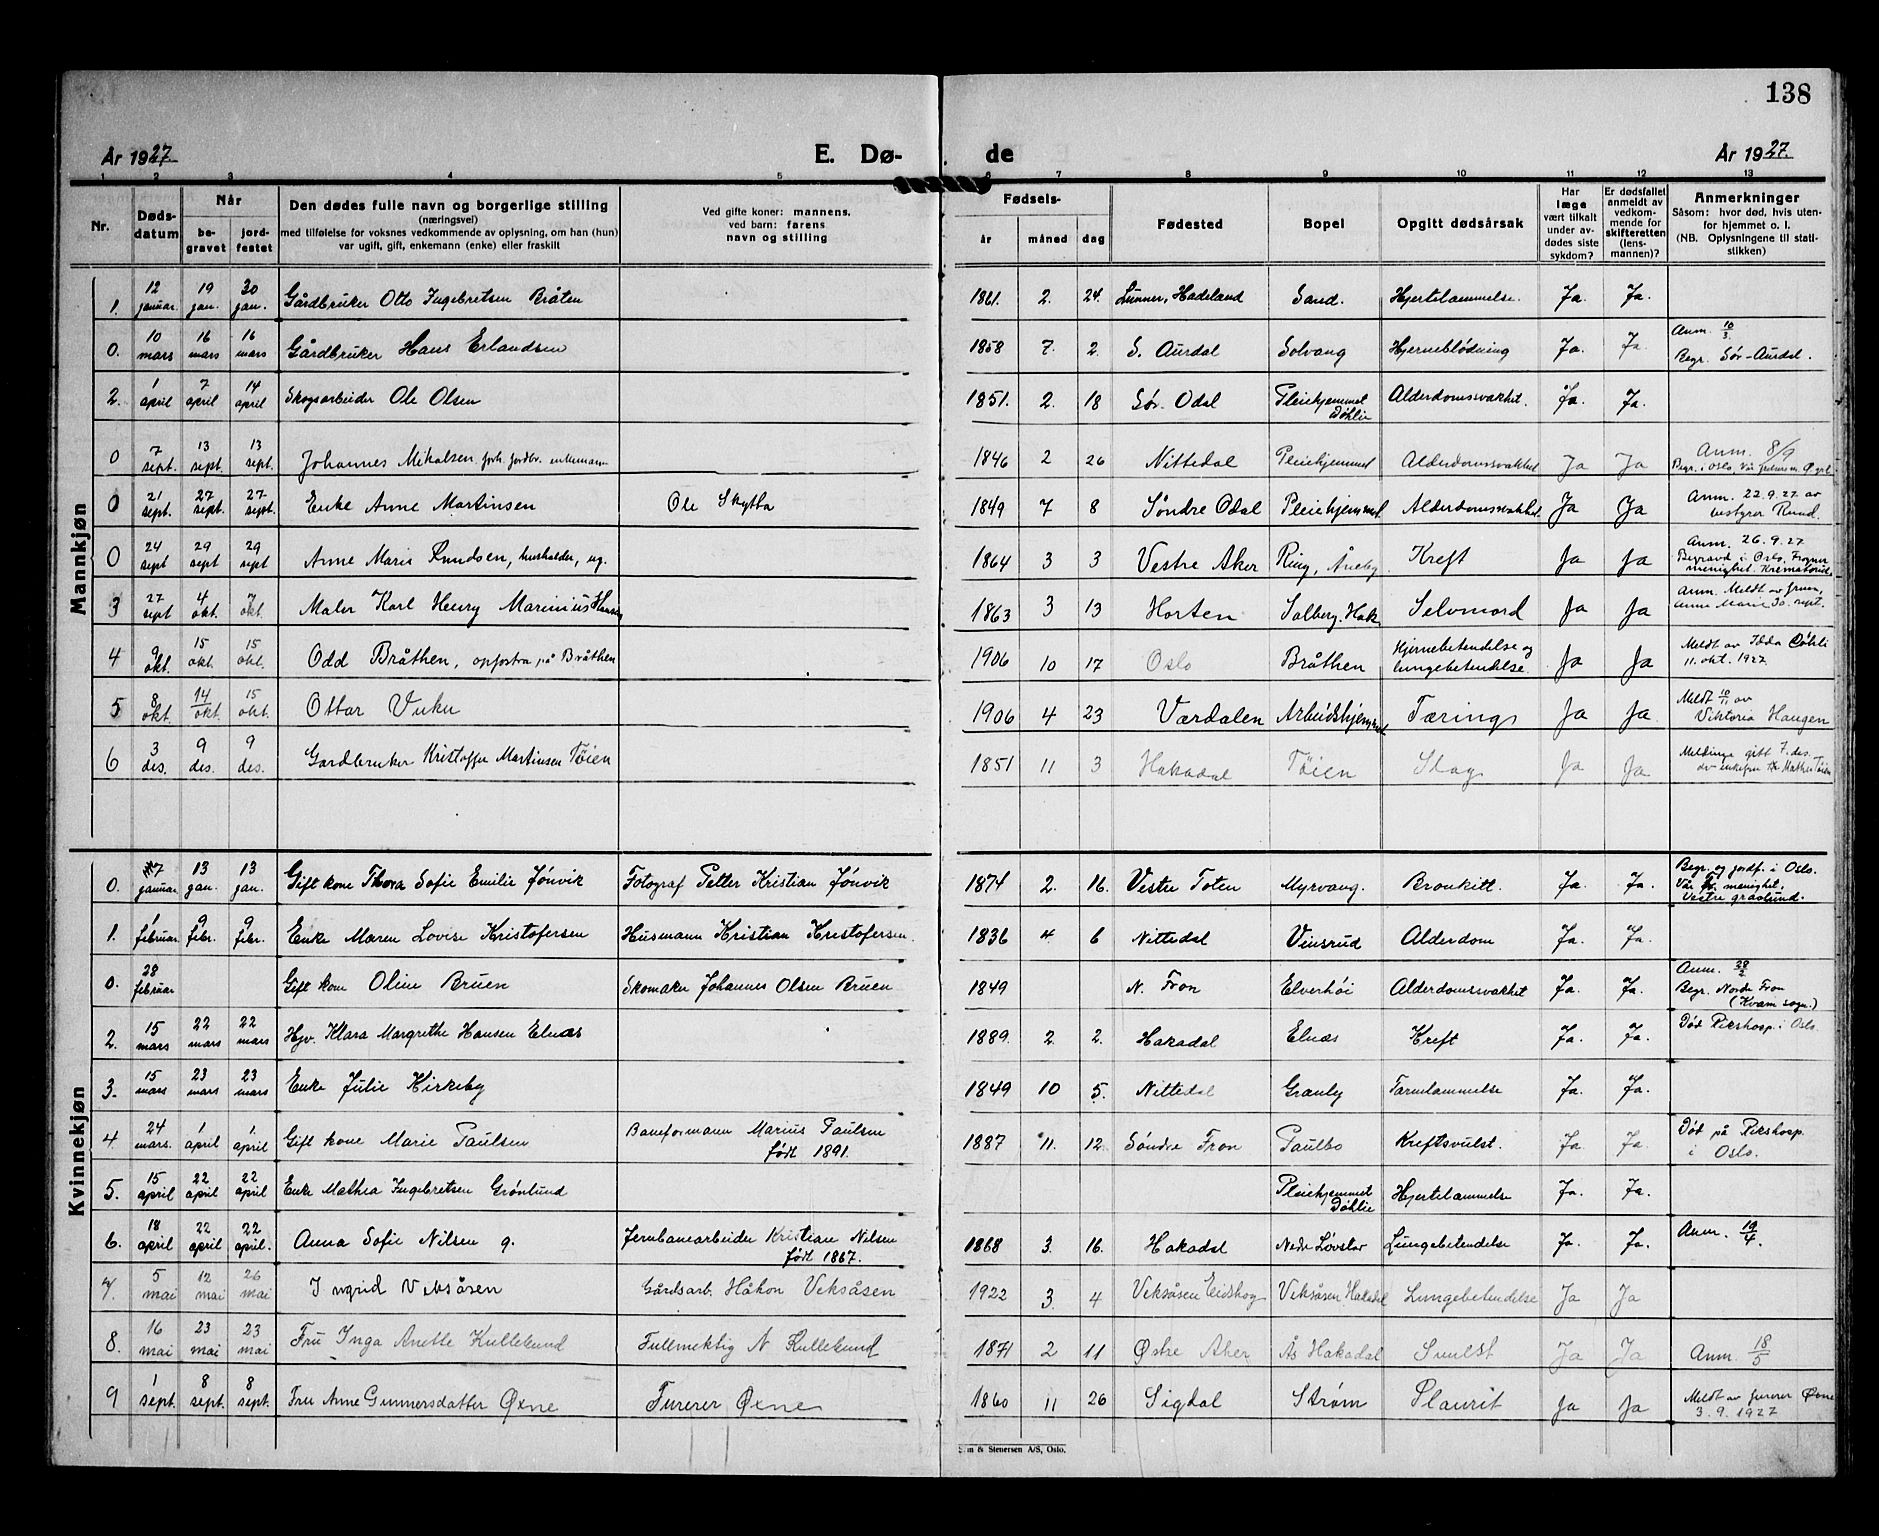 138
År 1927
E. Dø-
de
År 1927.
1 2 3 4 5 6 7 8 9 10 11 12 13
Nr.
Døds-
datum
Når
be-
gravet
jord-
festet
Den dødes fulle navn og borgerlige stilling
(næringsvei)
med tilføielse for voksnes vedkommende av oplysning, om han (hun)
var ugift, gift, enkemann (enke) eller fraskilt
Ved gifte koner: mannens,
ved barn: farens
navn og stilling
Fødsels-
år måned dag
Fødested
Bopel
Opgitt dødsårsak
Har
læge
vært tilkalt
under av-
dødes siste
sykdom?
Er dødsfallet
anmeldt av
vedkom-
mende for
skifteretten
(lens-
mannen)?
Anmerkninger
Såsom: hvor død, hvis uten-
for hjemmet o. l.
(NB. Oplysningene til stati-
stikken)
Mannkjøn
1. 12 januar. 19 jan. 30 jan. Gårdbruker Otto Ingebretsen Bråten 1861. 2. 24. Lunner, Hadeland Sand. Hjertelammelse. Ja. Ja.
0. 10 mars 16 mars 16 mars Gårdbruker Hans Erlandsen 1858 7. 2. S. Aurdal Solvang Hjerneblødning Ja. Ja. Anm. 10/3.
Begr. Sør-Aurdal.
2. 1 april 7 april 14 april Skogsarbeider Ole Olsen 1851. 2. 18 Sør. Odal Pleiehjemmet Døhlie Alderdomssvakhet. Ja. Ja.
0 7 sept. 13 sept. 13 sept. Johannes Mikalsen enkemann 1846 2 26 Nittedal Pleiehjemmet Alderdomssvakhet Ja Ja Anm. 8/9
Begr. i Oslo, Vår
0 21 sept. 27 sept. 27 sept. Enke Anne Martinsen Ole Skytta 1849 7 8 Søndre Odal Pleiehjemmet Alderdomssvakhet Ja Ja Anm. 22.9.27 av
bestyrer Ruud.
0 24 sept 29 sept 29 sept Anne Marie Knudsen, husholder, ug. 1864 3 3 Vestre Aker Ring, Åneby. Kreft Ja Ja Anm. 26.9.27
Begravd i Oslo, Frogner
menighet. Krematoriet
3 27 sept 4 okt. 7 okt. Maler Karl Henry Marinius Hansen 1863 3 13 Horten Solberg. Hak. Selvmord Ja Ja Anm. Meldt av fruen,
Anne Marie 30. sept.
4 9 okt. 15 okt. 15 okt. Odd Bråthen, opfostra på Bråthen 1906 10 17 Oslo Bråthen Hjernebetendelse og
lungebetendelse. Ja Ja Meldt av Døhli
11. okt. 1927
5 8 okt. 14 okt. 15 okt. Ottar Vuku 1906 4 23 Værdalen Arbeidshjemmet Tærings Ja Ja Meldt 10/11 av
Viktoria Haugen
6 3 des. 9 des. 9 des. Gardbruker Kristoffer Martinsen Tøien 1851 11 3 Hakadal Tøien Slag Ja Ja Meldinge gitt 7. des.
Mathea Tøien
Kvinnekjøn
0. 7 januar. 13 jan. 13 jan. Gift kone Thora Sofie Emilie Jónvik Fotograf Petter Kristian Jónvik 1874 2. 16. Vestre Toten Myrvang. Bronkitt. Ja. Ja. Begr. og jordf. i Oslo.
Vår menighet.
Vestre gravlund.
1. 1 februar. 9 febr. 9 febr. Enke Maren Lovise Kristofersen Husmann Kristian Kristofersen. 1836 4 6 Nittedal Vinsrud Alderdom Ja. Ja.
0. 28 februar Gift kone Oline Bruen Skomaker Johannes Olsen Bruen 1849 N. Fron Elverhøi Alderdomssvakhet Ja. Ja. Anm. 28/2
Begr. Nordre Fron
(Kvam sogn.)
2. 15 mars 22 mars 22 mars Hgv. Klara Margrethe Hansen Elnæs 1889. 2. 2. Hakadal Elnæs Kreft Ja. Ja. Død Rikshosp. i Oslo.
3. 15 mars 23 mars 23 mars Enke Julie Kirkeby 1849 10 5. Nittedal Granly Tarmlammelse Ja. Ja.
4. 24 mars. 1 april 1. april Gift kone Marie Paulsen Baneformann Marius Paulsen
født 1891. 1887 11. 12. Søndre Fron Paulbo Kreftsvulst. Ja. Ja. Død på Rikshosp.
i Oslo.
5. 15 april 22 april 22 april Enke Mathea Ingebretsen Grønlund Pleiehjemmet Døhlie Hjertelammelse Ja. Ja.
6. 18 april 22 april 22 april. Anna Sofie Nilsen g. Jernbanearbeider Kristian Nilsen
født 1867. 1868 3. 16. Hakadal Nedre Løvstad Lungebetendelse Ja. Ja. Anm. 19/4.
7. 5 mai 12 mai 26 mai Ingrid Veksåsen Gårdsarb. Håkon Veksåsen 1922 3. 4 Veksåsen Eidskog Veksåsen Hakadal Lungebetendelse Ja Ja
8. 16 mai 23 mai 23 mai Fru Inga Anette Kullelund Fullmektig N Kullelund 1871 2 11 Østre Aker Ås Hakadal Svulst Ja Ja Anm. 18/5
9 1 sept. 8 sept. 8 sept. Fru Anne Gunnersdatter Øxne Furerer Øxne 1860 11 26 Sigdal Strøm Plaurit Ja Ja Meldt av furerer Øxne
3.9.1927
& Stenersen A/S, Oslo.